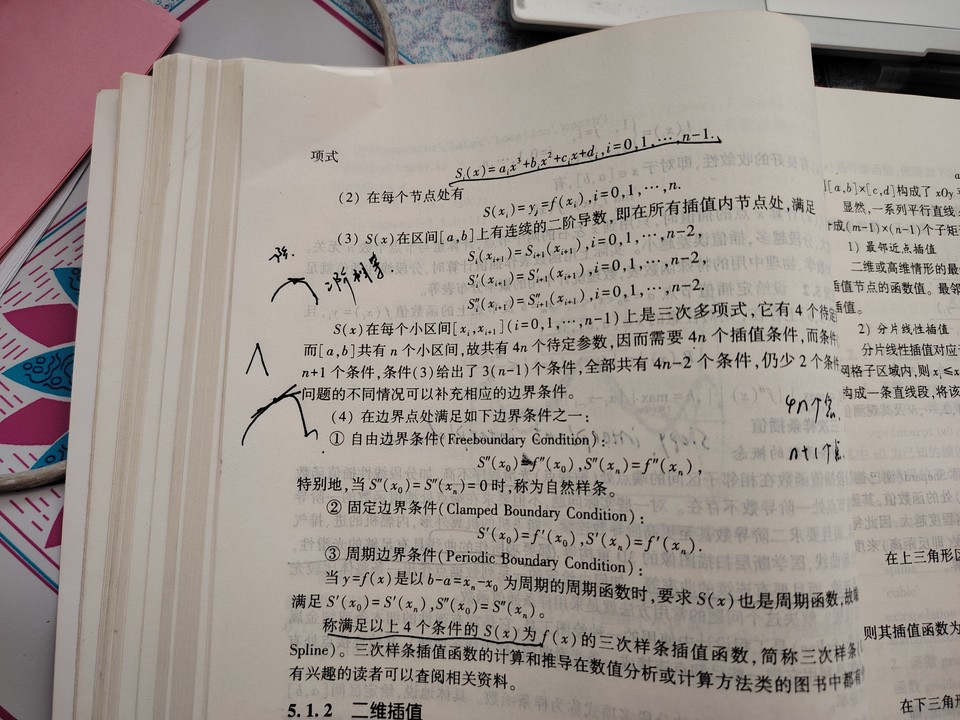 项式
S_i(x)=a_ix³+b_ix²+c_ix+d_i,i=0,1,…,n-1.
(2) 在每个节点处有
S(x_i)=y_i=f(x_i),i=0,1,…,n.
(3) S(x)在区间[a,b]上有连续的二阶导数,即在所有插值内节点处,满足
S_i(x_{i+1})=S_{i+1}(x_{i+1}),i=0,1,…,n-2,
S′_i(x_{i+1})=S′_{i+1}(x_{i+1}),i=0,1,…,n-2,
S″_i(x_{i+1})=S″_{i+1}(x_{i+1}),i=0,1,…,n-2,
S(x)在每个小区间[x_i,x_{i+1}](i=0,1,…,n-1)上是三次多项式,它有4个待定
而[a,b]共有n个小区间,故共有4n个待定参数,因而需要4n个插值条件,而条件
n+1个条件,条件(3)给出了3(n-1)个条件,全部共有4n-2个条件,仍少2个条件
问题的不同情况可以补充相应的边界条件。
4n个
(4) 在边界点处满足如下边界条件之一:
① 自由边界条件(Freeboundary Condition):
n+1个
S″(x_0)=f″(x_0),S″(x_n)=f″(x_n),
特别地,当S″(x_0)=S″(x_n)=0时,称为自然样条。
② 固定边界条件(Clamped Boundary Condition):
S′(x_0)=f′(x_0),S′(x_n)=f′(x_n).
③ 周期边界条件(Periodic Boundary Condition):
当y=f(x)是以b-a=x_n-x_0为周期的周期函数时,要求S(x)也是周期函数,故
满足S′(x_0)=S′(x_n),S″(x_0)=S″(x_n)。
称满足以上4个条件的S(x)为f(x)的三次样条插值函数,简称三次样条(
Spline)。三次样条插值函数的计算和推导在数值分析或计算方法类的图书中都有
有兴趣的读者可以查阅相关资料。
5.1.2 二维插值
[a,b]×[c,d]构成了xOy
显然,一系列平行直线
成(m-1)×(n-1)个子矩
1) 最邻近点插值
二维或高维情形的最
值节点的函数值。最邻
插值。
2) 分片线性插值
分片线性插值对应
网格子区域内,则x_i≤x
构成一条直线段,将该
在上三角形区
则其插值函数为
在下三角形